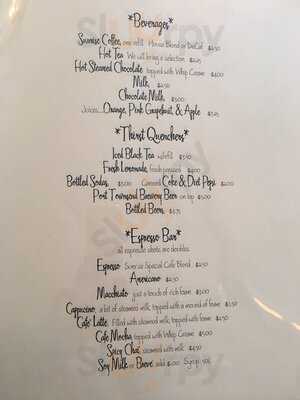 *Beverages*
Sunrise Coffee, one refill House Blend or DeCaf $2.50
Hot Tea We will bring a selection $2.25
Hot Steamed Chocolate topped with Whip Creme $4.00
Milk, $2.50
Chocolate Milk, $3.00
Juices... Orange, Pink Grapefruit, & Apple
*Thirst Quenchers*
Iced Black Tea w/refill
Fresh Lemonade, fresh pressed $4.00
Bottled Sodas, Canned Coke & Diet Pepsi $2.00
Port Townsend Brewery Beer on tap $5.00
Bottled Beers,
*Espresso Bar*
all espresso shots are doubles
Espresso Sunrise Special Cafe Blend $2.50
Americano $2.50
Macchiato just a touch of rich foam $3.00
Cappucino, a bit of steamed milk, topped with a mound of foam
Cafe' Latte, Filled with steamed milk, topped with foam
Cafe Mocha, topped with Whip Creme $5.00
Spicy Chai, steamed with milk $4.50
Soy Milk or Breve, add Syrup 50¢